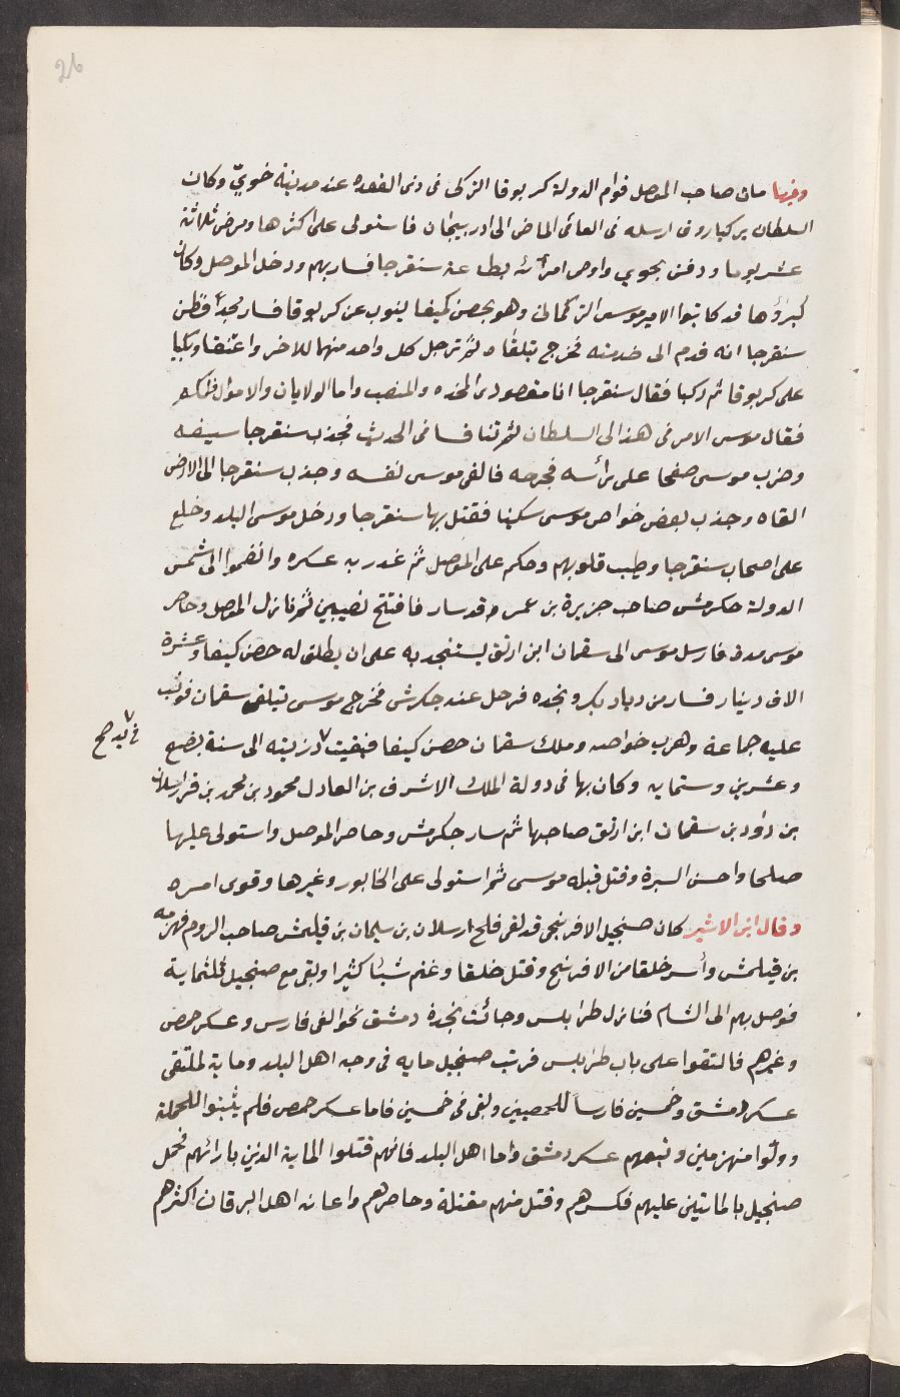 26
وفيها مات صاحب الموصل قوام الدولة كربوقا التركى فى ذى القعده عند مدينة خوىّ وكان
السلطان بركياروق ارسله فى العام الماضى الى اذربيجان فاستولى على اكثرها ومرض ثلاثة
عشر يوما ودفن بخوي واوصى امرأته بطاعة سنقرجا فسار بهم ودخل الموصل وكان
كبراؤها قد كاتبوا الامير موسى التركمانى وهو بحصن كيفا ينوب عن كربوقا فسار مجدّا فظن
سنقرجا انه قدم الى خدمته فخرج يتلقاه ثم ترجل كل واحد منهما للاخر واعتنقا وبكيا
على كربوقا ثم ركبا فقال سنقرجا انا مقصودى المخده والمنصب واما الولايات والاموال فلكم
فقال موسى الامر فى هذا الى السلطان ثم تنافسا فى الحديث فجذب سنقرجا سيفه
وضرب موسى صفحا على رأسه فجرحه فالقى موسى نفسه وجذب سنقرجا الى الارض
القاه وجذب بعض خواص موسى سكينا فقتل بها سنقرجا ودخل موسى البلد وخلع
على اصحاب سنقرجا وطيب قلوبهم وحكم على الموصل ثم غدر به عسكره وانضموا الى شمس
الدولة جكرمش صاحب جزيرة بن عمر وقد سار فافتتح نصيبين ثم نازل الموصل وحاصر
موسى مدة فارسل موسى الى سقمان ابن ارتق يستنجد به على ان يطلق له حصن كيفا وعشرة
الاف دينار فسار من ديار بكر ونجده فرحل عنه جكرمش فخرج موسى يتلقى سقمان فوثب
عليه جماعة وهرب خواصه وملك سقمان حصن كيفا فبقيت ٧ ذريته الى سنة بضع
٧ فى يد صح
وعشرين وستمايه وكان بها فى دولة الملك الاشرف بن العادل محمود بن محمد بن قرا ارسلان
بن داود بن سقمان ابن ارتق صاحبها ثم سار جكرمش وحاصر الموصل واستولى عليها
صلحا واحسن السيرة وقتل قتله موسى ثم استولى على الخابور وغيرها وقوى امره
وقال ابن الاثير كان صنجيل الافرنجى قد لقى قلج ارسلان بن سليمان بن قتلمش صاحب الروم فهزمه
بن قتلمش وأسر خلقا من الافرنج وقتل خلقا وغنم شيئا كثيرا وبقى مع صنجيل ثلثماية
فوصل بهم الى الشام فنازل طرابلس وجائت نجدة دمشق نحو الفى فارس وعسكر حمص
وغيرهم فالتقوا على باب طرابلس فرتب صنجيل مايه فى وجه اهل البلد وماية لملتقى
عسكر دمشق وخمسين فارسا للحمصيين وبقى فى خمسين فاما عسكر حمص فلم يثبتوا للحملة
وولّوا منهزمين وتبعهم عسكر دمشق وأما اهل البلد فانهم قتلوا الماية الذين بازائهم فحمل
صنجيل بالمائتين عليهم فكسرهم وقتل منهم مقتلة وحاصرهم واعانه اهل البر فان اكثرهم